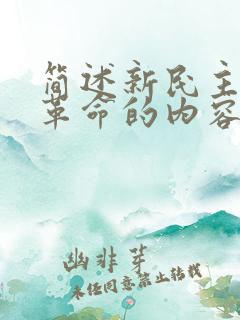 简述新民主
革命的内容
幽非芽
未经同意禁止转载